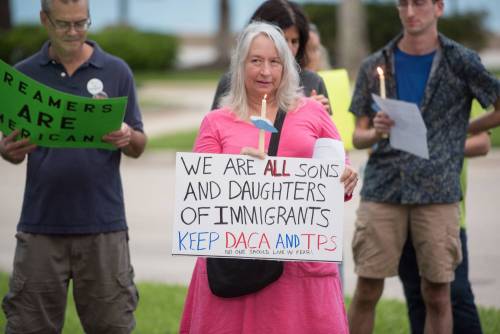 REAMERS
ARE
MERICAN
WE ARE ALL SONS
AND DAUGHTERS
OF IMMIGRANTS
KEEP DACA AND TPS
NO ONE SHOULD LIVE IN FEAR!